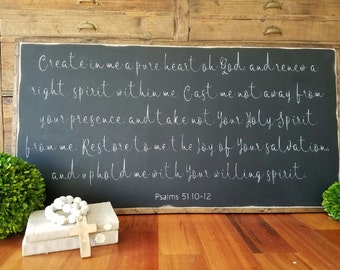 Create in me a pure heart oh God, and renew a
right spirit within me. Cast me not away from
your presence and take not Your Holy Spirit
from me. Restore to me the Joy of Your salvation,
and uphold me with Your willing spirit.
Psalms 51:10-12